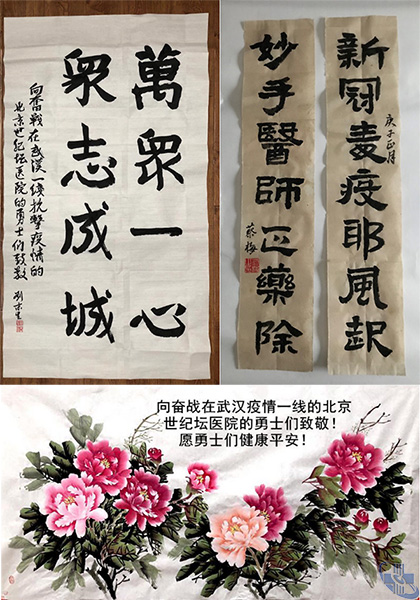 萬衆一心
衆志成城
向奮戰在武漢一线抗擊疫情的
北京世纪坛医院的勇士们致敬
新冠毒疫耶風起
庚子正月
妙手醫師正藥除
蔡梅
向奋战在武汉疫情一线的北京
世纪坛医院的勇士们致敬！
愿勇士们健康平安！